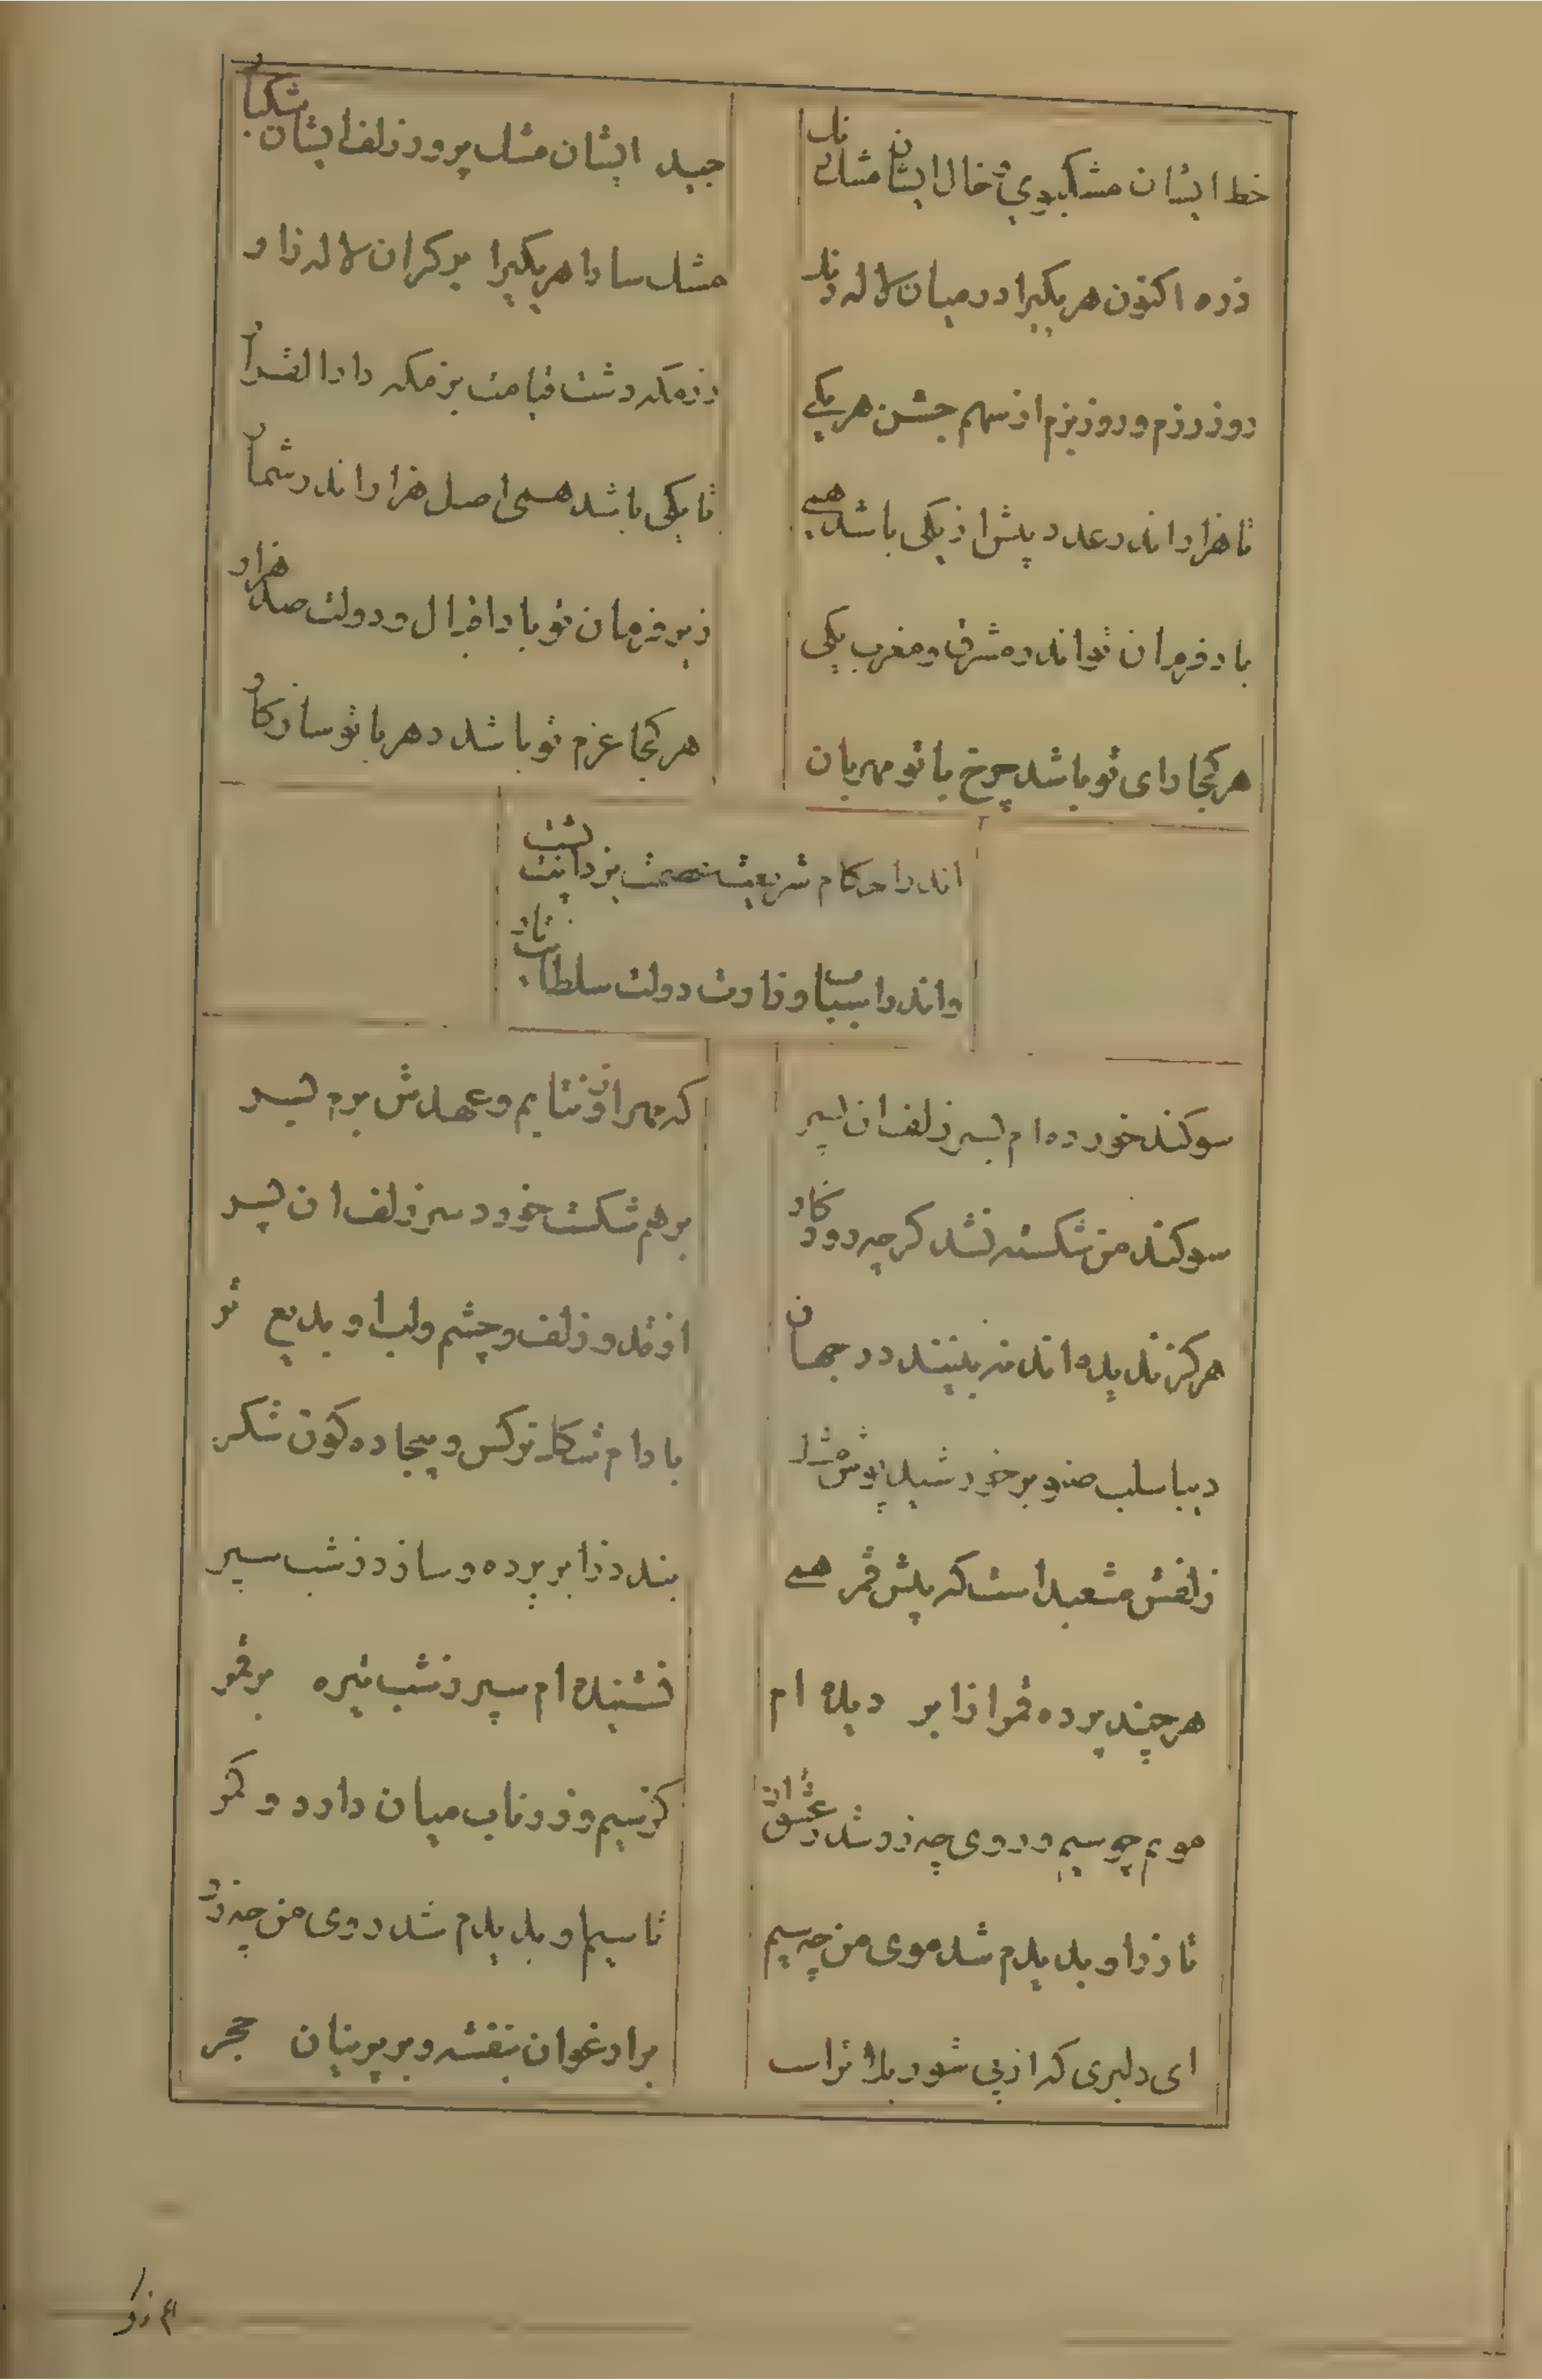 خط ایشان مشکبوی و خال ایشان مشک
جید ایشان مشک پرور زلف ایشان مشکبار
ذره اکنون هر یکیرا در میان لاله
مشک سارا هر یکیرا بر کران لاله زار
روز رزم و روز بزم از سهم جشن هر یکی
رزمکه دشت قیامت بزمکه دار القرار
تا هزار اندر عدد پیش از یکی باشد همی
تا یکی باشد همی اصل هزار اندر شمار
باد فرمان تو اندر مشرق و مغرب یکی
زیر فرمان تو باد اقبال و دولت صد هزار
هر کجا رای تو باشد چرخ با تو مهربان
هر کجا عزم تو باشد دهر با تو سازکار
اندر احکام شریعت نصمت یزدانیت پشت
واندر اسباب وزارت دولت سلطانیت یار
سوکند خورده ام بسر زلف ان پسر
که مهر او نتابم و عهدش برم بسر
سوکند من شکسته نشد کرچه روزکار
برهم شکست خورد سر زلف ان پسر
هرکز ندیده اند نه بینند در جهان
از قد و زلف و چشم و لب او بدیع تر
دیبا سلب صنوبر خورشید پوش مشک
بادام شکل نرکس و بیجاده کون شکر
زلفش مشعبد است که پیش قمر همی
بندد ز ابر پرده و سازد ز شب سپر
هر چند پرده قمر از ابر دیده ام
نشنیده ام سپر ز شب تیره بر قمر
مویم چو سیم و روی چه زر شد ز عشق ان
کز سیم و زر ناب میان دارد و کمر
تا زر او بدیدم شد موی من چه سیم
تا سیم او بدیدم شد روی من چه زر
ای دلبری که از پی شور بلا تراست
بر ارغوان بنفشه و بر پرنیان حجر